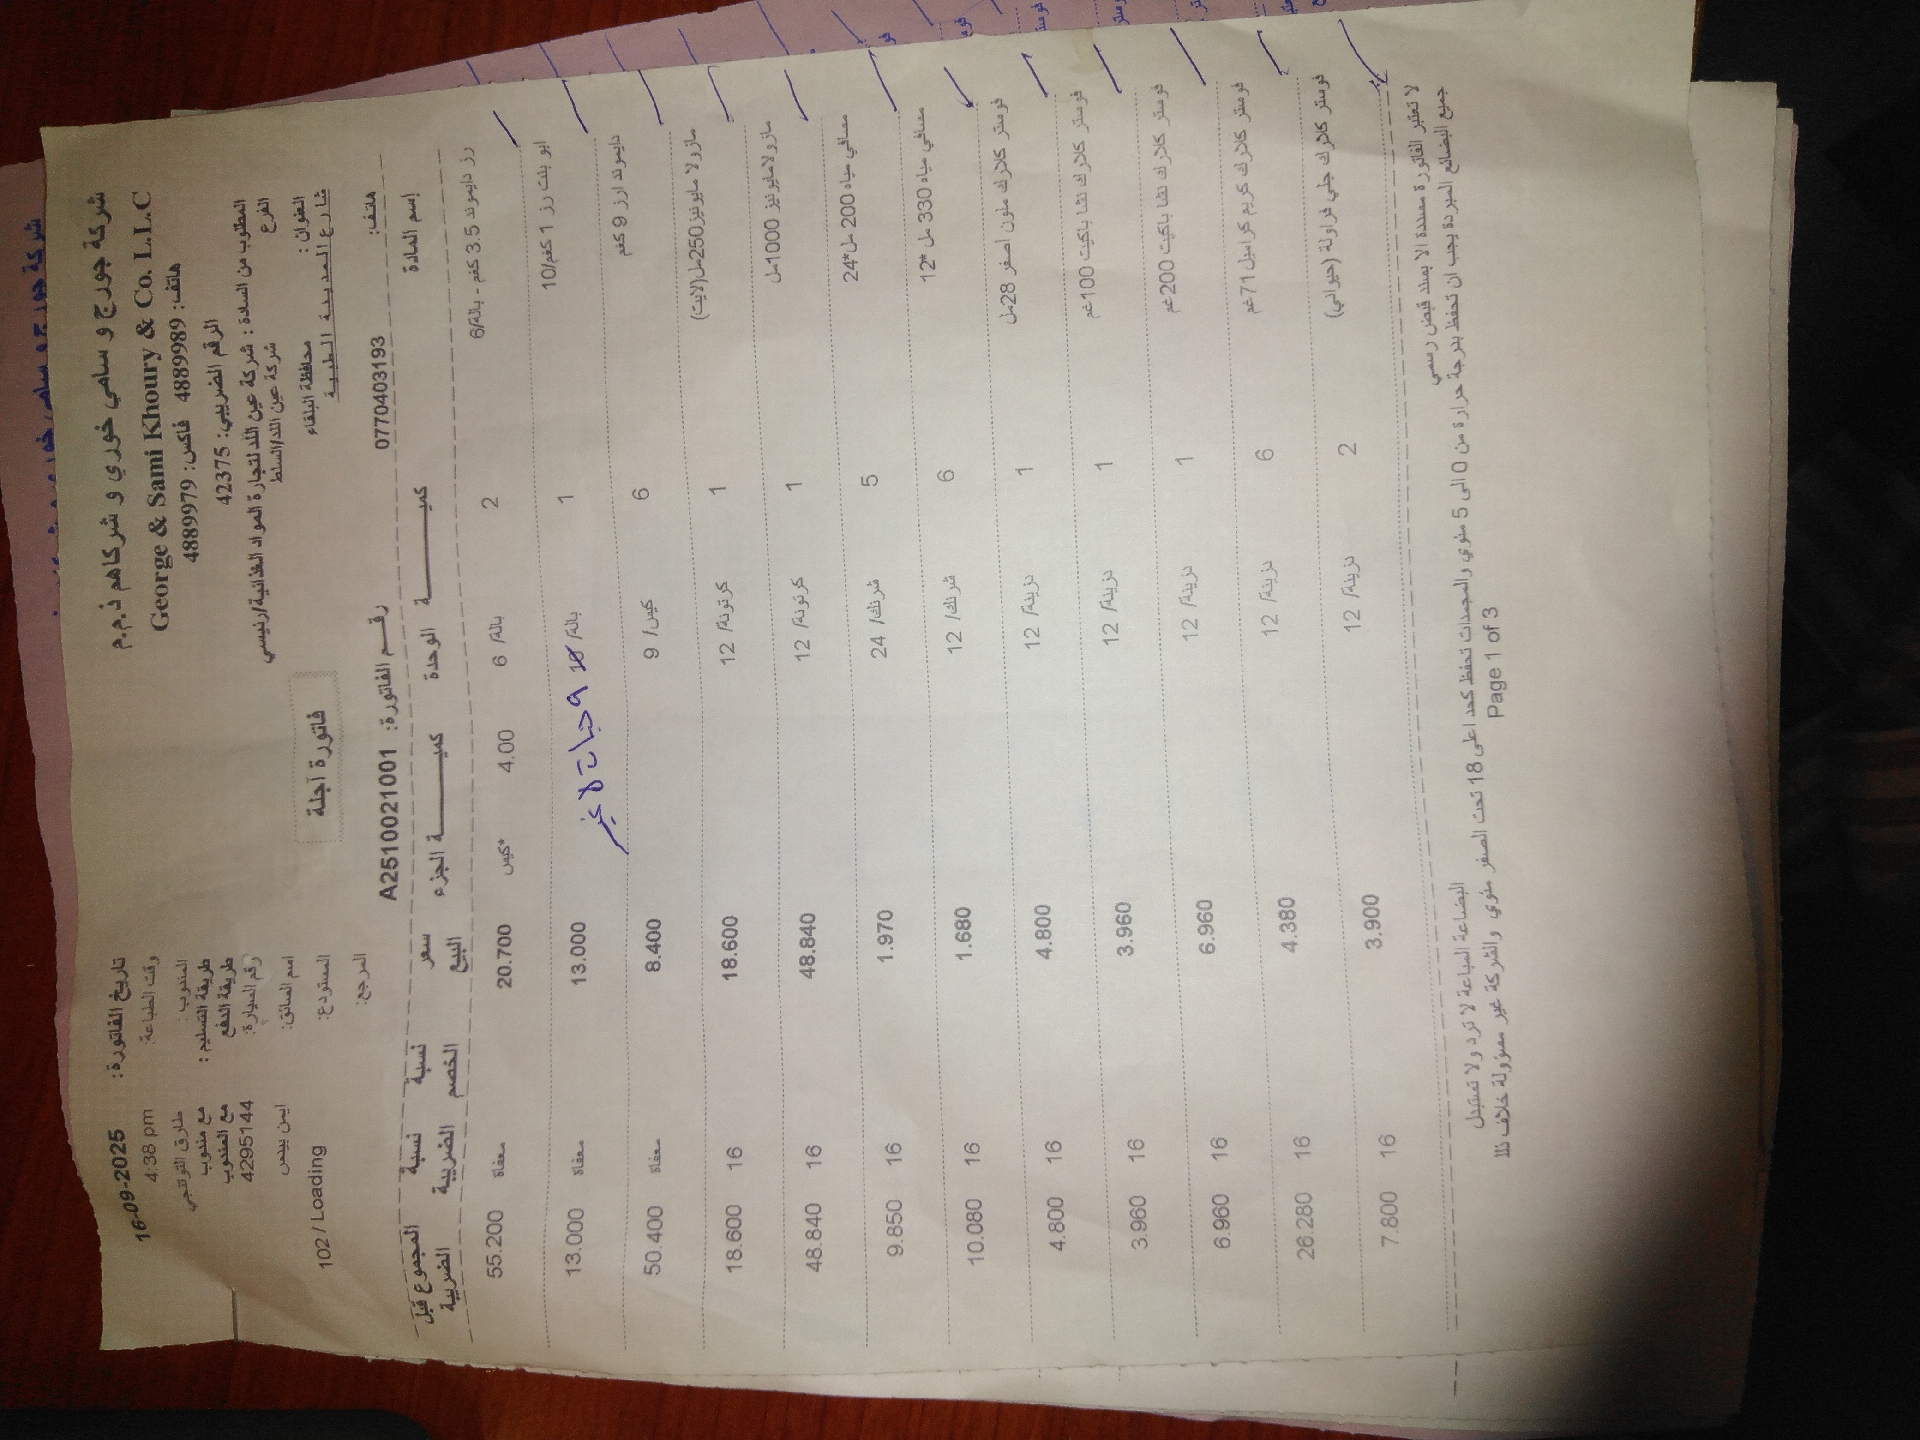 شركة جورج و سامي خوري و شركاهم ذ.م.م
George & Sami Khoury & Co. L.L.C
هاتف: 4889989 فاكس: 4889979
الرقم الضريبي: 42375
المطلوب من السادة : شركة عين اللد لتجارة المواد الغذائية/رئيسي
الفرع شركة عين اللد/السلط
العنوان : محافظة البلقاء
شارع المدينة الطبية
هاتف: 0770403193
فاتورة آجلة
رقم الفاتورة: A2510021001
تاريخ الفاتورة: 16-09-2025
وقت الطباعة: 4:38 pm
المندوب : طارق القوتلجي
طريقة التسليم : مع مندوب
طريقة الدفع مع المندوب
رقم السيارة: 4295144
اسم السائق: ايمن
المستودع: 102 / Loading
المرجع:
إسم المادة كميـة الوحدة كميـة الجزء سعر البيع نسبة الخصم نسبة الضريبة المجموع قبل الضريبة
رز دايموند 3.5 كغم - بالة/6 2 بالة/ 6 4.00 كيس* 20.700 معفاة 55.200
ابو بنت رز 1 كغم/10 1 بالة/ 10 13.000 معفاة 13.000
٩ حبات لا غير
دايموند ارز 9 كغم 6 كيس/ 9 8.400 معفاة 50.400
مازولا مايونيز250مل(لايت) 1 كرتونة/ 12 18.600 16 18.600
مازولامايونيز 1000مل 1 كرتونة/ 12 48.840 16 48.840
مسافي مياه 200 مل*24 5 شرنك/ 24 1.970 16 9.850
مسافي مياه 330 مل *12 6 شرنك/ 12 1.680 16 10.080
فوستر كلارك ملون اصفر 28مل 1 دزينة/ 12 4.800 16 4.800
فوستر كلارك نشا باكيت 100غم 1 دزينة/ 12 3.960 16 3.960
فوستر كلارك نشا باكيت 200غم 1 دزينة/ 12 6.960 16 6.960
فوستر كلارك كريم كراميل 71غم 6 دزينة/ 12 4.380 16 26.280
فوستر كلارك جلي فراولة (حيواني) 2 دزينة/ 12 3.900 16 7.800
لا تعتبر الفاتورة مسددة الا بسند قبض رسمي البضاعة المباعة لا ترد ولا تستبدل
جميع البضائع المبردة يجب ان تحفظ بدرجة حرارة من 0 الى 5 مئوي والمجمدات تحفظ كحد اعلى 18 تحت الصفر مئوي والشركة غير مسؤولة خلاف ذلك
Page 1 of 3